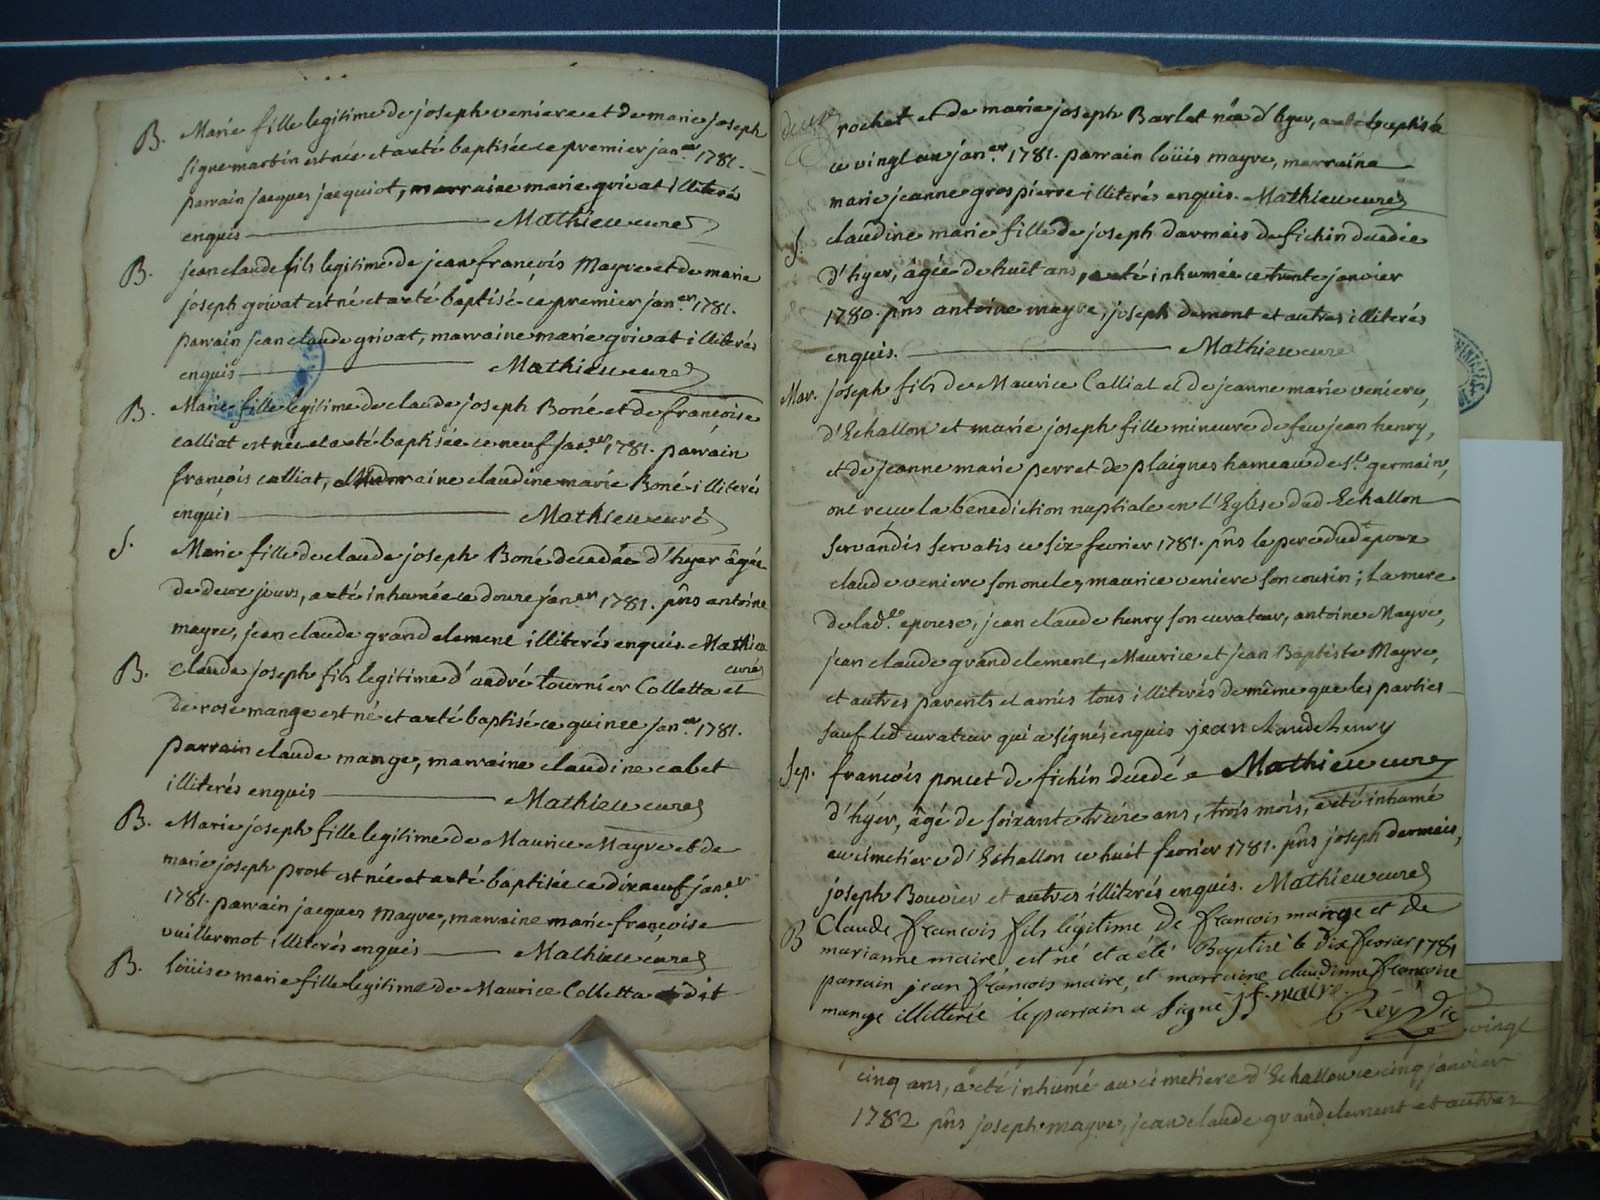 B. Marie fille legitime de joseph veniere et de marie joseph
sigue martin est née et a eté baptisée ce premier jan.er 1781.
parrain jacques jacquiot, marraine marie grivat illiterés
enquis Mathieu curé
B. jean claude fils legitime de jean francois Mayre et de marie
joseph grivat est né et a eté baptisé ce premier jan.er 1781.
parrain jean claude grivat, marraine marie grivat illiterés
enquis Mathieu curé
B. Marie fille legitime de claude joseph Boné et de francoise
calliat est née et a eté baptisée ce neuf jan.er 1781. parrain
francois calliat, marraine claudine marie Boné illiterés
enquis Mathieu curé
S. Marie fille de claude joseph Boné decedée d'hyer âgée
de deux jours, a eté inhumée ce douze jan.er 1781. pñs antoine
mayre, jean claude grandclement illiterés enquis. Mathieu
curé
B. Claude joseph fils legitime d'andré tournier Colletta et
de rose mange est né et a eté baptisé ce quinze jan.er 1781.
parrain claude mange, marraine claudine cabet
illiterés enquis Mathieu curé
B. Marie joseph fille legitime de Maurice Mayre et de
marie joseph prost est née et a eté baptisée ce dixneuf jan.er
1781. parrain jacques Mayre, marraine marie francoise
vuillermot illiterés enquis Mathieu curé
B. loüise marie fille legitime de Maurice Colletta dit
rochet et de marie joseph Barlet née d'hyer, a eté baptisée
ce vingt un jan.er 1781. parrain loüis mayre, marraine
marie jeanne grospierre illiterés enquis. Mathieu curé
S. claudine marie fille de joseph darmais de fichin decedée
d'hyer, âgée de huit ans, a eté inhumée ce trente janvier
1780. pñs antoine mayre, joseph demont et autres illiterés
enquis. Mathieu curé
Mar. joseph fils de Maurice Calliat et de jeanne marie veniere,
d'Echallon et marie joseph fille mineure de feu jean henry,
et de jeanne marie perret de plaignes hameau de s.t germain,
ont recu la benediction nuptiale en l'Eglise dud Echallon
servandis servatis ce six fevrier 1781. pñs le pere dud epoux
claude veniere son oncle, maurice veniere son cousin; la mere
de lad.e epouse, jean claude henry son curateur, antoine Mayre,
jean claude grandclement, Maurice et jean Baptiste Mayre,
et autres parents et amis tous illiterés de même que les parties
sauf led curateur qui a signés enquis jean claude henry
Sep. francois poncet de fichin decedé Mathieu curé
d'hyer, âgé de soixante treize ans, trois mois, a eté inhumé
au cimetiere d'Echallon ce huit fevrier 1781. pñs joseph darmais,
joseph Bouvier et autres illiterés enquis. Mathieu curé
B Claude francois fils légitime de francois mange et de
marianne maire est né et a été Baptisé le dix fevrier 1781
parrain jean francois maire, et marraine claudinne francoise
mange illitterée le parrain a signé jf. maire
Rey Vic
vingt
cinq ans, a eté inhumé au cimetiere d'Echallon ce cinq janvier
1782 pñs joseph mayre, jean claude grandclement et autres